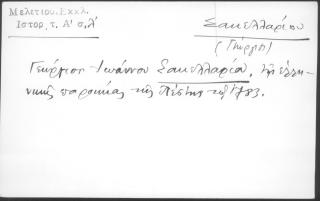 Μελετίου.Εκκλ.
Ιστορ.τ. Α' σ.λ'
Σακελλαρίου
(Γεώργιος)
Γεώργιος Ιωάννου Σακελλαρίου, της ελλη-
νικής παροικίας της Πέστης τω 1783.